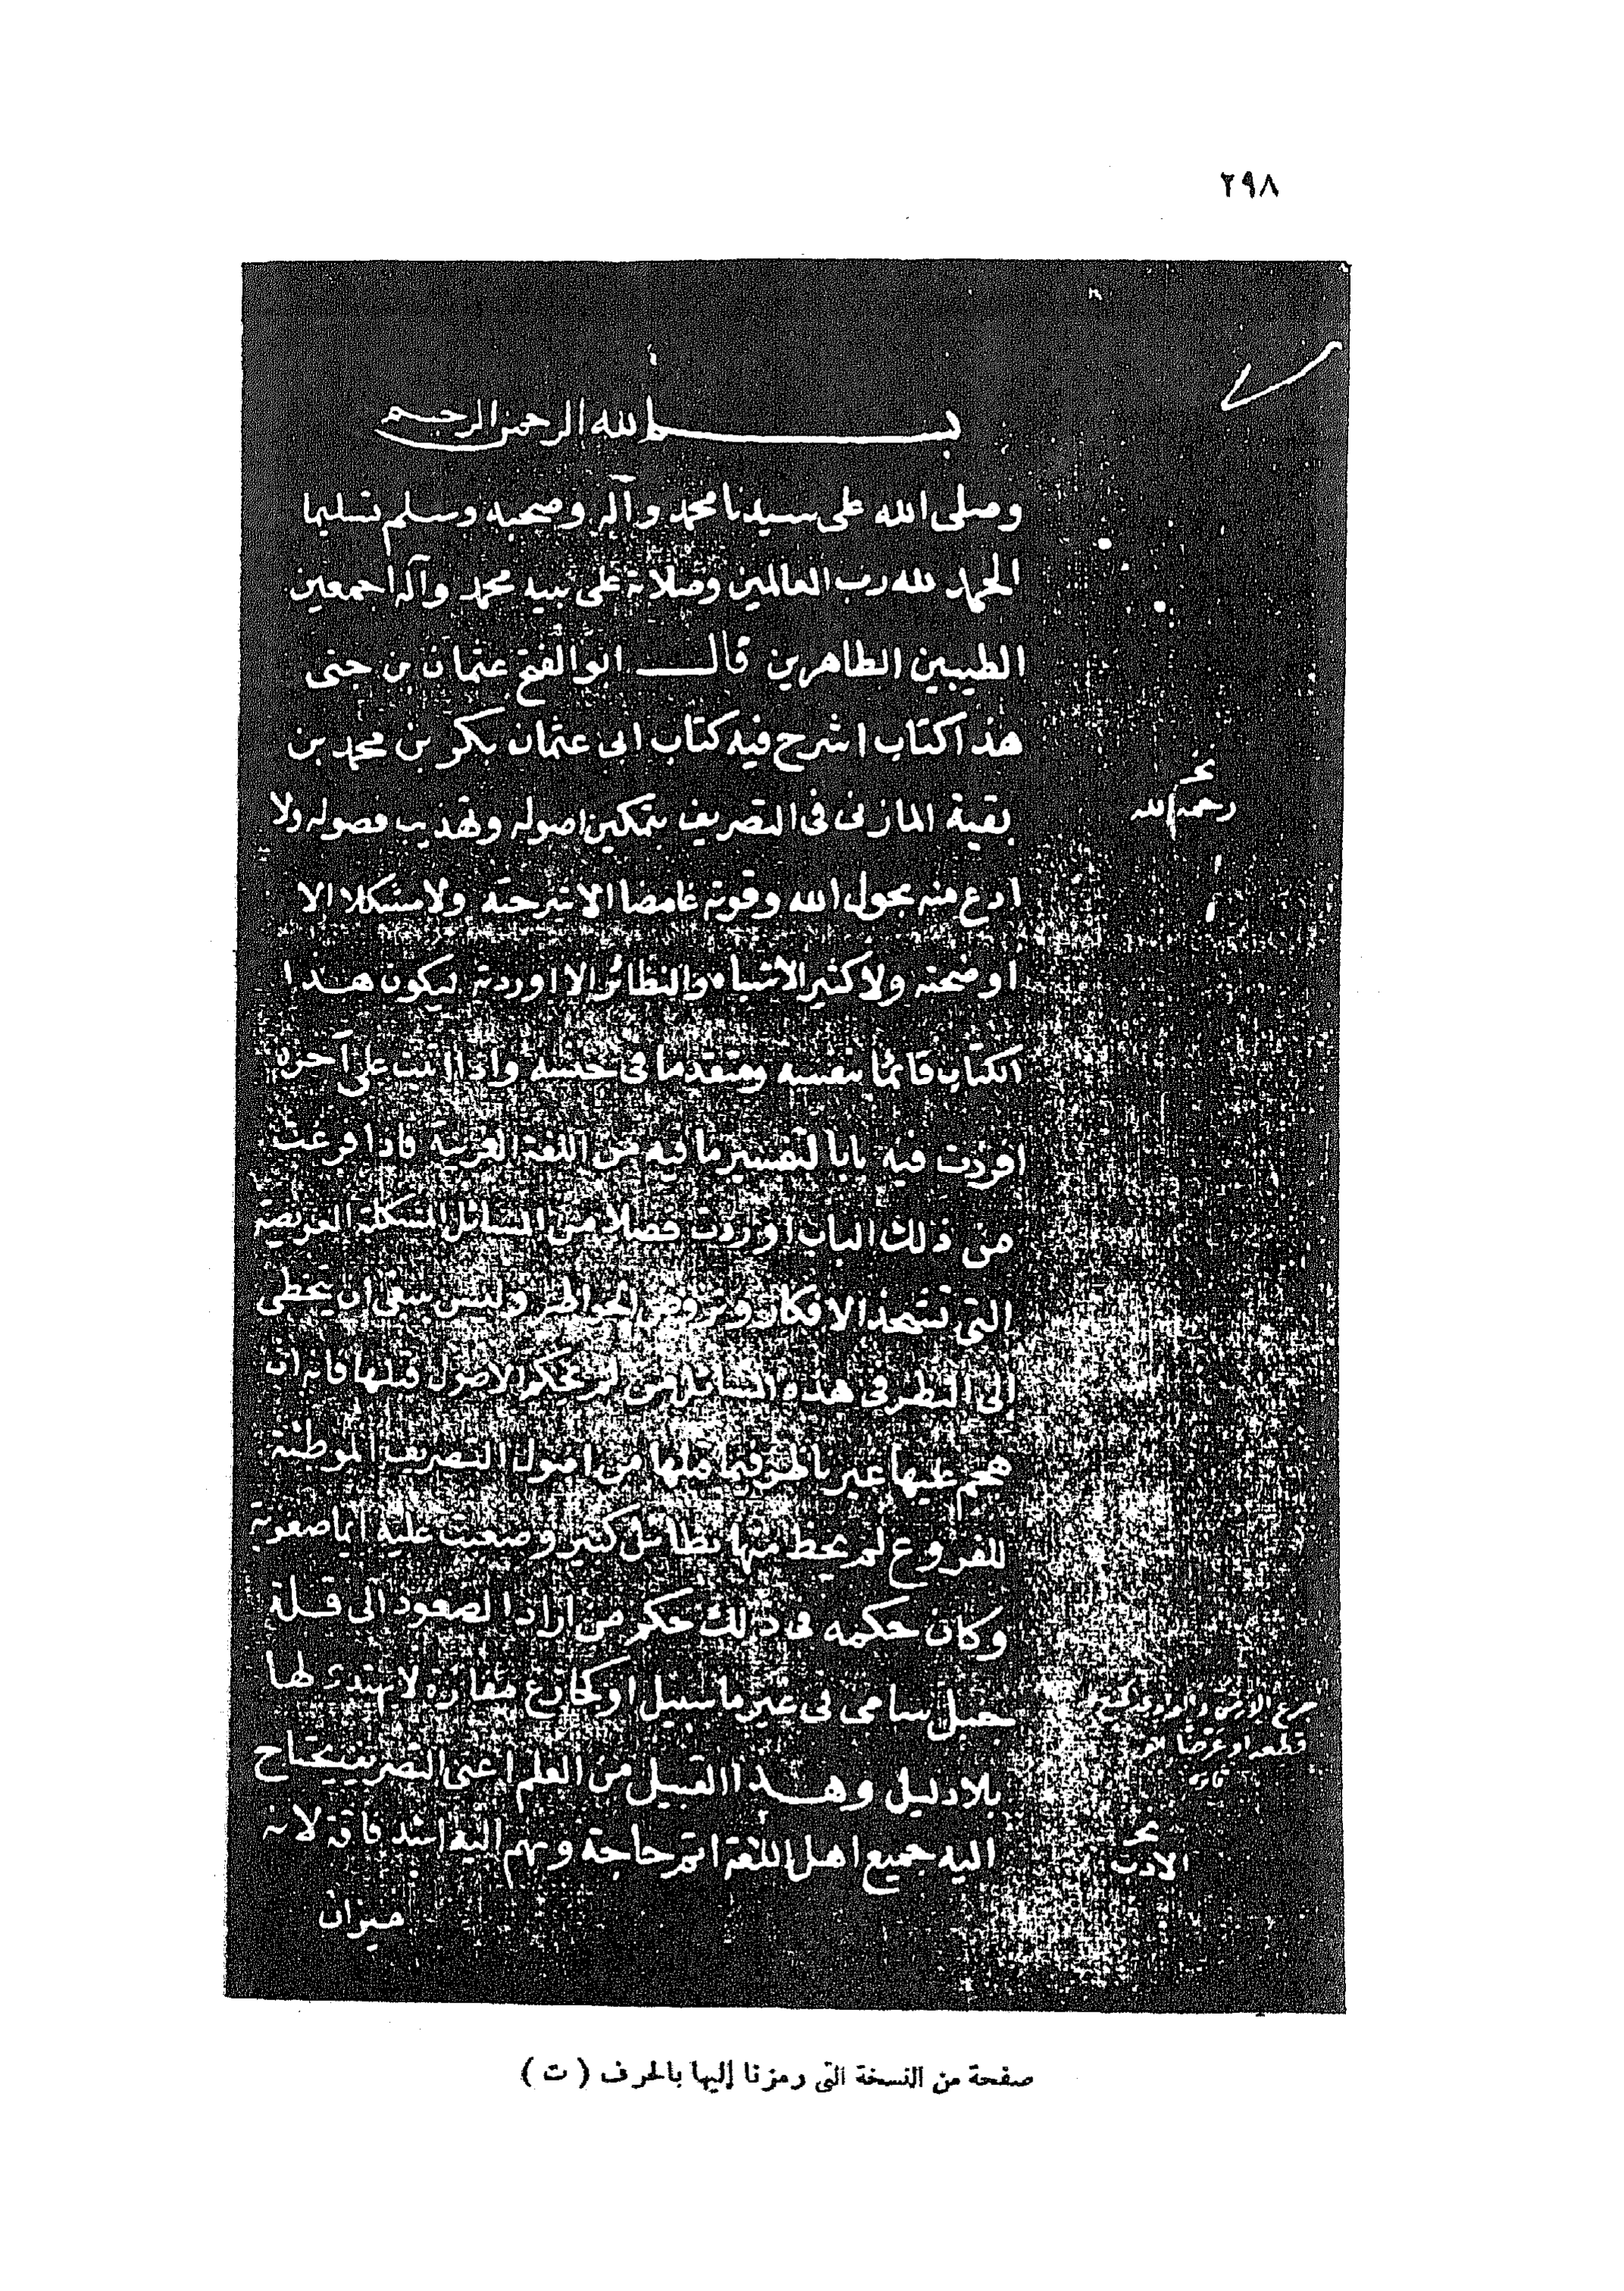 ٢٩٨
بسم الله الرحمن الرحيم
وصلى الله على سيدنا محمد وآله وصحبه وسلم تسليما
الحمد لله رب العالمين وصلاة على نبيه محمد وآله اجمعين
الطيبين الطاهرين قال ابو الفتح عثمان بن جنى
هذا كتاب اشرح فيه كتاب ابى عثمان بكر بن محمد بن
بقية المازنى فى التصريف بتمكين اصوله وتهذيب فصوله ولا
رحمه الله
ادع منه بحول الله وقوته غامضا الا شرحته ولا مشكلا الا
اوضحته ولا كثير الاشباه والنظائر الا اوردته ليكون هذا
الكتاب قائما بنفسه ومتقدما فى جنسه واذا اتيت على آخره
افردت فيه بابا لتفسير ما فيه من اللغة الغريبة فاذا فرغت
من ذلك الباب اوردت فصلا من المسائل المشكلة العويصة
التى تشحذ الافكار وتروض الخواطر وليس ينبغى ان يتخطى
الى النظر فى هذه المسائل من لم يحكم الاصول قبلها فانه ان
هجم عليها غير ناظر فيما قبلها من اصول التصريف الموطئة
للفروع لم يحظ منها بطائل كبير وصعبت عليه ايما صعوبة
وكان حكمه فى ذلك حكم من اراد الصعود الى قلة
جبل سامى فى غير ما سبيل او كجازع مفازة لا يهتدى لها
بلا دليل وهذا القبيل من العلم اعنى التصريف يحتاج
اليه جميع اهل اللغة اتم حاجة وبهم اليه اشد فاقة لانه
ميزان
صفحة من النسخة التى رمزنا إليها بالحرف ( ت )